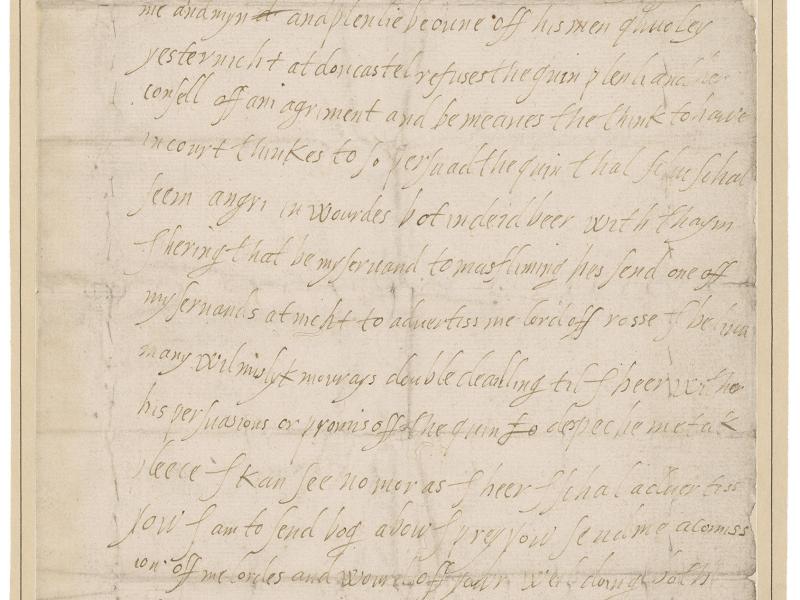 me and myn and plenlie be oune off his men quuoley
yesternicht at doncastel refuses the quin plenli and her
consell off ani agriment and be meanes the think to have
in court thinkes to so persuad the quin that sche schal
seem angri in wourdes bot indeid beer with thaym
I hering that be my servand to mast fliming hes send one off
my servands at nicht to advertiss me lord off rosse I be
many wil mislyk mourays double dealling til I heer wither
his persuasions or promis off the quin to depeche me tak
pleece I kan see no mor as I heer I schal advertiss
yow I am to send bog abow I prey yow send me a comiss
ion off me lordes and word off your weil doing both